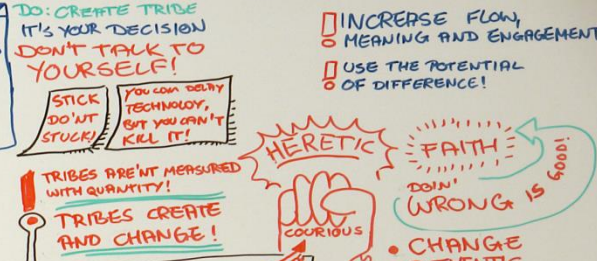 DO: CREATE TRIBE
IT'S YOUR DECISION
DON'T TALK TO
YOURSELF!
STICK
DO'NT
STUCK!
YOU CAN DELAY
TECHNOLOY,
BUT YOU CAN'T
KILL IT!
TRIBES ARE'NT MEASURED
WITH QUANTITY!
TRIBES CREATE
AND CHANGE!
INCREASE FLOW,
MEANING AND ENGAGEMENT
USE THE POTENTIAL
OF DIFFERENCE!
HERETIC
COURIOUS
FAITH
DOIN'
WRONG IS GOOD!
CHANGE